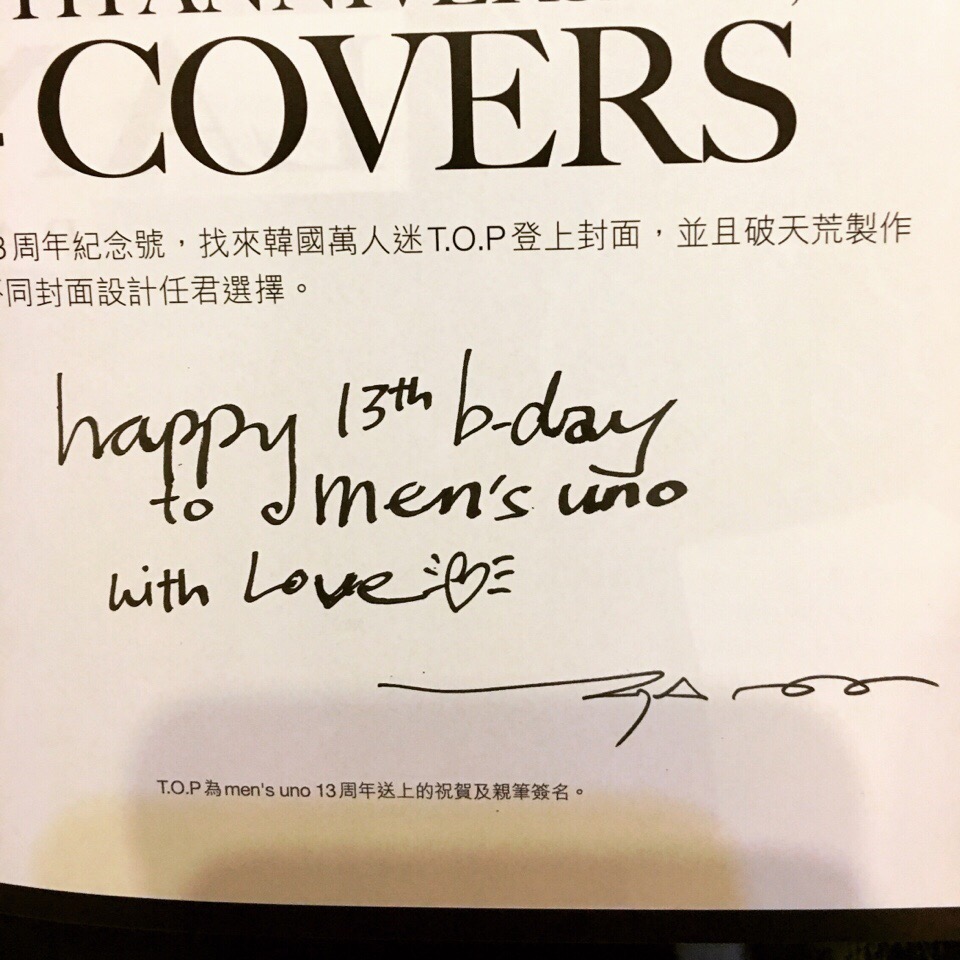 TH ANNIVERSARY,
COVERS
3周年紀念號，找來韓國萬人迷T.O.P登上封面，並且破天荒製作
不同封面設計任君選擇。
happy 13th b-day
to men's uno
with Love
T.O.P為men's uno 13周年送上的祝賀及親筆簽名。